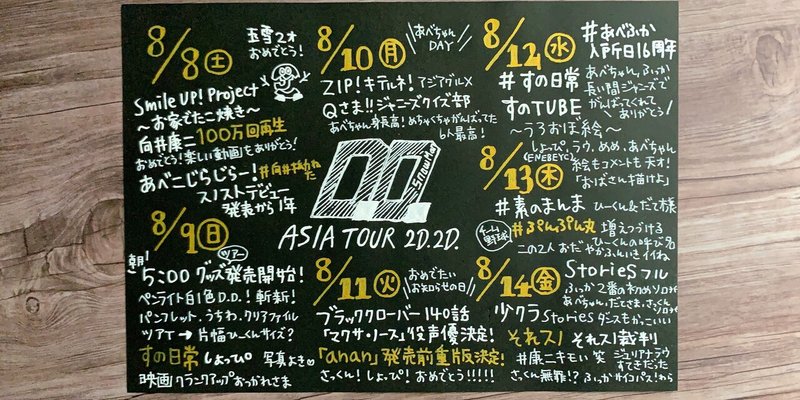 8/8㊏
玉雪2才
おめでとう!
Smile UP! Project
～お家でたこ焼き～
向井康二100万回再生
おめでとう!楽しい動画もありがとう!
あべこじらじらー!
スノストデビュー
発表から1年
8/9㊐
朝
ツアー
5:00 グッズ発売開始!
ペンライト白色D.D.!斬新!
パンフレット、うちわ、クリアファイル
ツアT→片幅ひーくんサイズ?
すの日常 しょっぴ 写真よき♡
映画クランクアップおつかれさま
8/10㊊
あべちゃん
DAY
ZIP!キテルネ!アジアグルメ
Qさま!!ジャニーズクイズ部
あべちゃん身長高!めちゃくちゃがんばってた
6人最高!
D.D.
SnowMan
ASIA TOUR 2D.2D.
8/11㊋
おめでたい
お知らせの日
ブラッククローバー140話
「マクサ・ノース」役声優決定!
「anan」発売前重版決定!
さっくん!しょっぴ!おめでとう!!!!!
8/12㊌
#あべふか
入所日16周年
#すの日常
あべちゃん、ふっか
長い間ジャニーズで
がんばってくれて
ありがとう!
すのTUBE
～うろおぼ絵～
しょっぴ、ラウ、めめ、あべちゃん
(ENEBEYC)
絵もコメントも天才!
「おばさん描けよ」
8/13㊍
#素のまんま
ひーくん&だて様
チーム
野球
#ぷんぷん丸
増えつづける
ひーくんの呼び名
この2人おだやかふんいきイイね
8/14㊎
Storiesフル
ふっか2番の初めソロ
あべちゃん、だてさま、さっくん
少クラ Storiesダンスもかっこいい
それスノ それスノ裁判
#康二キモい 笑
ジュリアナラウ
すてきだった
さっくん無罪!? ふっかサイコパス!わら